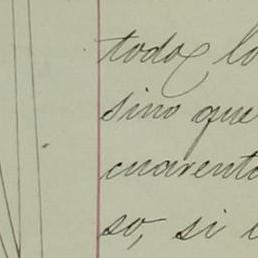 todos lo
sino que
cuarenta
so, si